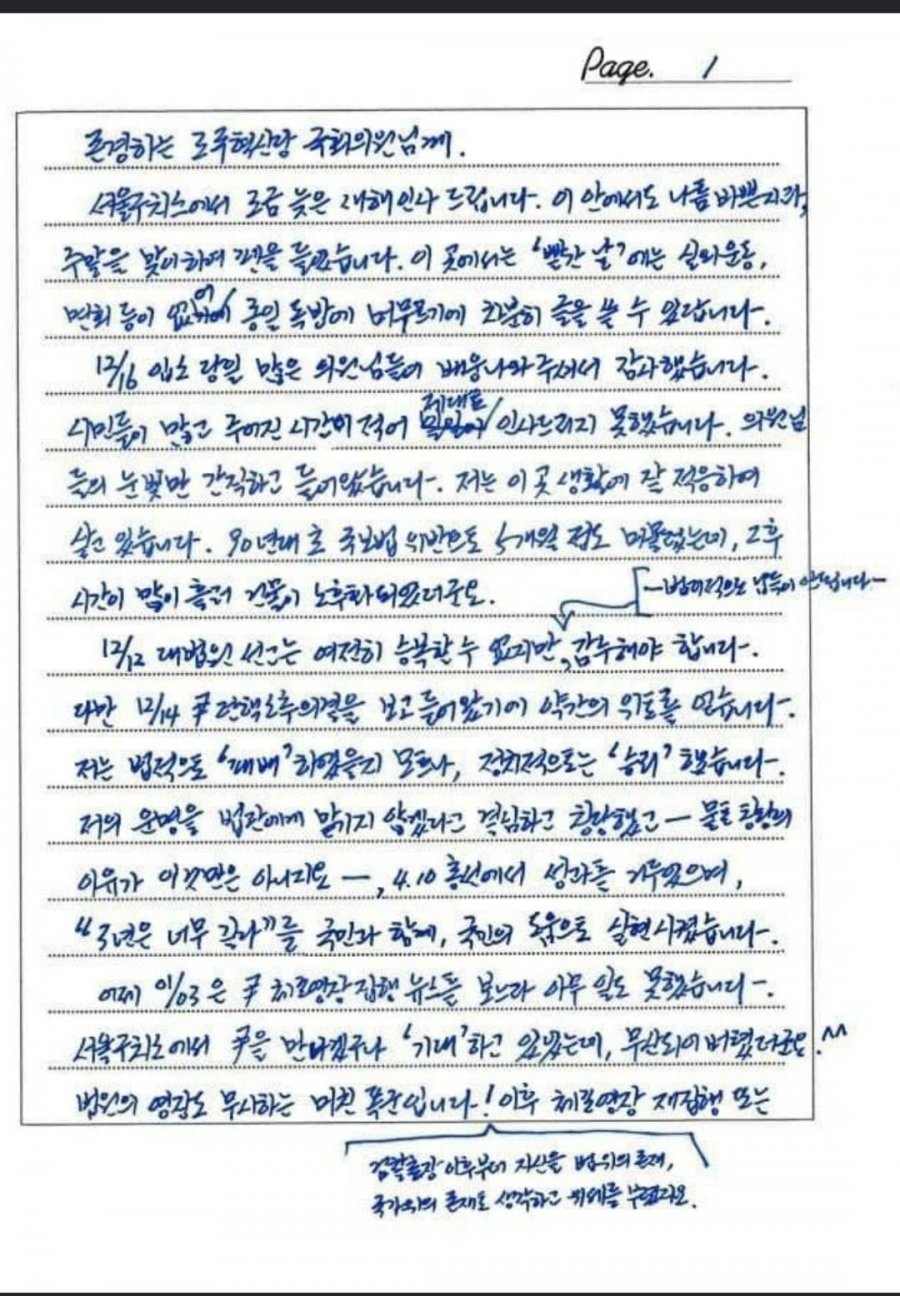 Page. 1
존경하는 조국혁신당 국회의원님께.
서울구치소에서 조금 늦은 새해인사 드립니다. 이 안에서도 나름 바쁜지라,
주말을 맞이하여 펜을 들었습니다. 이 곳에서는 '빨간 날'에는 실외운동,
면회 등이 없어 종일 독방에 머무르기에 차분히 글을 쓸 수 있답니다.
12/16 입소 당일 많은 의원님들이 배웅나와주셔서 감사했습니다.
시민들이 많고 주어진 시간이 적어 제대로 인사드리지 못했습니다. 의원님
들의 눈빛만 간직하고 들어왔습니다. 저는 이 곳 생활에 잘 적응하여
살고 있습니다. 90년대 초 국보법 위반으로 5개월 정도 머물렀는데, 그후
시간이 많이 흘러 건물이 노후화되었더군요.
-법리적으로 납득이 안됩니다-
12/12 대법원 선고는 여전히 승복할 수 없지만, 감수해야 합니다.
다만 12/14 尹 탄핵소추의결을 보고 들어왔기에 약간의 위로를 얻습니다.
저는 법적으로 '패배'하였을지 모르나, 정치적으로는 '승리'했습니다.
저의 운명을 법관에게 맡기지 않겠다고 결심하고 창당했고 — 물론 창당의
이유가 이것만은 아니지요 —, 4.10 총선에서 성과를 거두었으며,
"3년은 너무 길다"를 국민과 함께, 국민의 도움으로 실현시켰습니다.
어제 01/03은 尹 체포영장 집행 뉴스를 보느라 아무 일도 못했습니다.
서울구치소에서 尹을 만나겠구나 '기대'하고 있었는데, 무산되어버렸더군요. ^^
법원의 영장도 무시하는 미친 폭군입니다! 이후 체포영장 재집행 또는
검찰총장 이후부터 자신을 법위의 존재,
국가위의 존재로 생각하고 위세를 부렸지요.